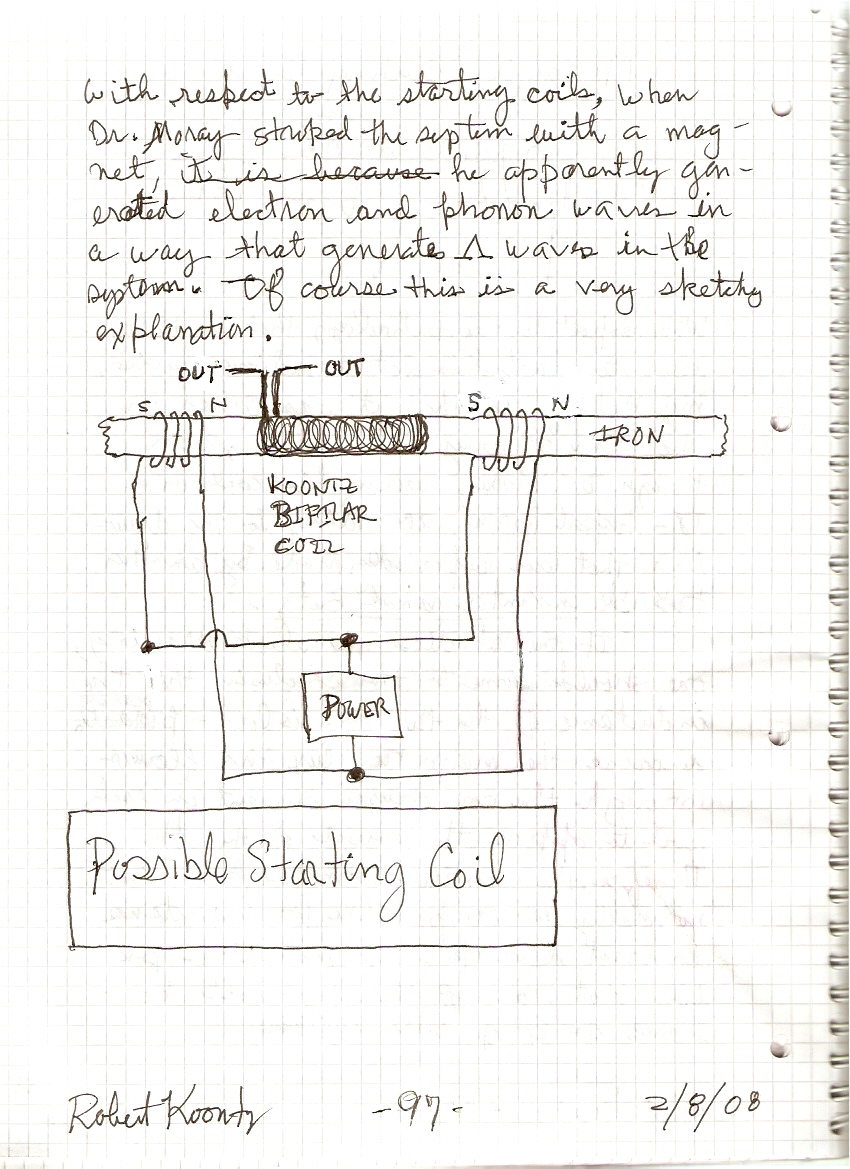 With respect to the starting coils, when
Dr. Moray stroked the system with a mag-
net, it is because he apparently gen-
erated electron and phonon waves in
a way that generates Λ waves in the
system. Of course this is a very sketchy
explanation.
OUT OUT
S N S N
IRON
KOONTZ
BIFILAR
COIL
POWER
Possible Starting Coil
Robert Koontz -97- 2/8/08